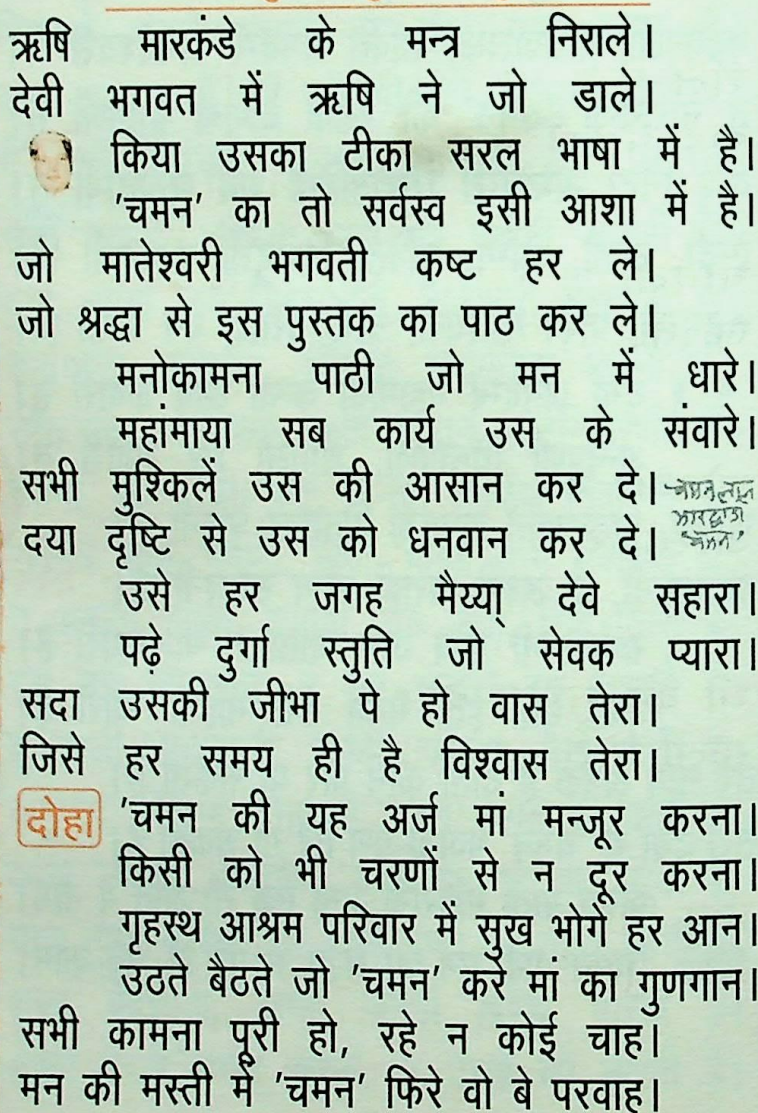 ऋषि मारकंडे के मन्त्र निराले।
देवी भगवत में ऋषि ने जो डाले।
किया उसका टीका सरल भाषा में है।
'चमन' का तो सर्वस्व इसी आशा में है।
जो मातेश्वरी भगवती कष्ट हर ले।
जो श्रद्धा से इस पुस्तक का पाठ कर ले।
मनोकामना पाठी जो मन में धारे।
महांमाया सब कार्य उस के संवारे।
सभी मुश्किलें उस की आसान कर दे।
दया दृष्टि से उस को धनवान कर दे।
चमनलाल
भारद्वाज
'चमन'
उसे हर जगह मैय्या् देवे सहारा।
पढ़े दुर्गा स्तुति जो सेवक प्यारा।
सदा उसकी जीभा पे हो वास तेरा।
जिसे हर समय ही है विश्वास तेरा।
दोहा 'चमन की यह अर्ज मां मन्जूर करना।
किसी को भी चरणों से न दूर करना।
गृहस्थ आश्रम परिवार में सुख भोगे हर आन।
उठते बैठते जो 'चमन' करे मां का गुणगान।
सभी कामना पूरी हो, रहे न कोई चाह।
मन की मस्ती में 'चमन' फिरे वो बे परवाह।